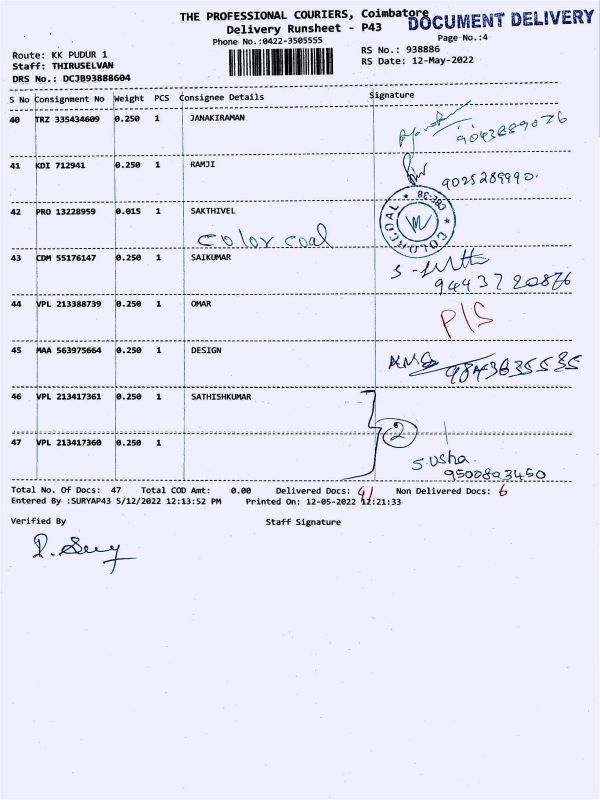 THE PROFESSIONAL COURIERS, Coimbatore
DOCUMENT DELIVERY
Delivery Runsheet - P43
Phone No.:0422-3505555
Page No.:4
Route: KK PUDUR 1
RS No.: 938886
Staff: THIRUSELVAN
RS Date: 12-May-2022
DRS No.: DCJB93888604
S No Consignment No Weight PCS Consignee Details Signature
40 TRZ 335434609 0.250 1 JANAKIRAMAN
9043889076
41 KDI 712941 0.250 1 RAMJI
9025289990.
42 PRO 13228959 0.015 1 SAKTHIVEL
COLORCOAL CBE-38
color coal
43 CDM 55176147 0.250 1 SAIKUMAR
9443720876
44 VPL 213388739 0.250 1 OMAR
P/S
45 MAA 563975664 0.250 1 DESIGN
9843635535
46 VPL 213417361 0.250 1 SATHISHKUMAR
2
47 VPL 213417360 0.250 1
S.Usha
9500803450
Total No. Of Docs: 47 Total COD Amt: 0.00 Delivered Docs: 41 Non Delivered Docs: 6
Entered By :SURYAP43 5/12/2022 12:13:52 PM Printed On: 12-05-2022 12:21:33
Verified By Staff Signature